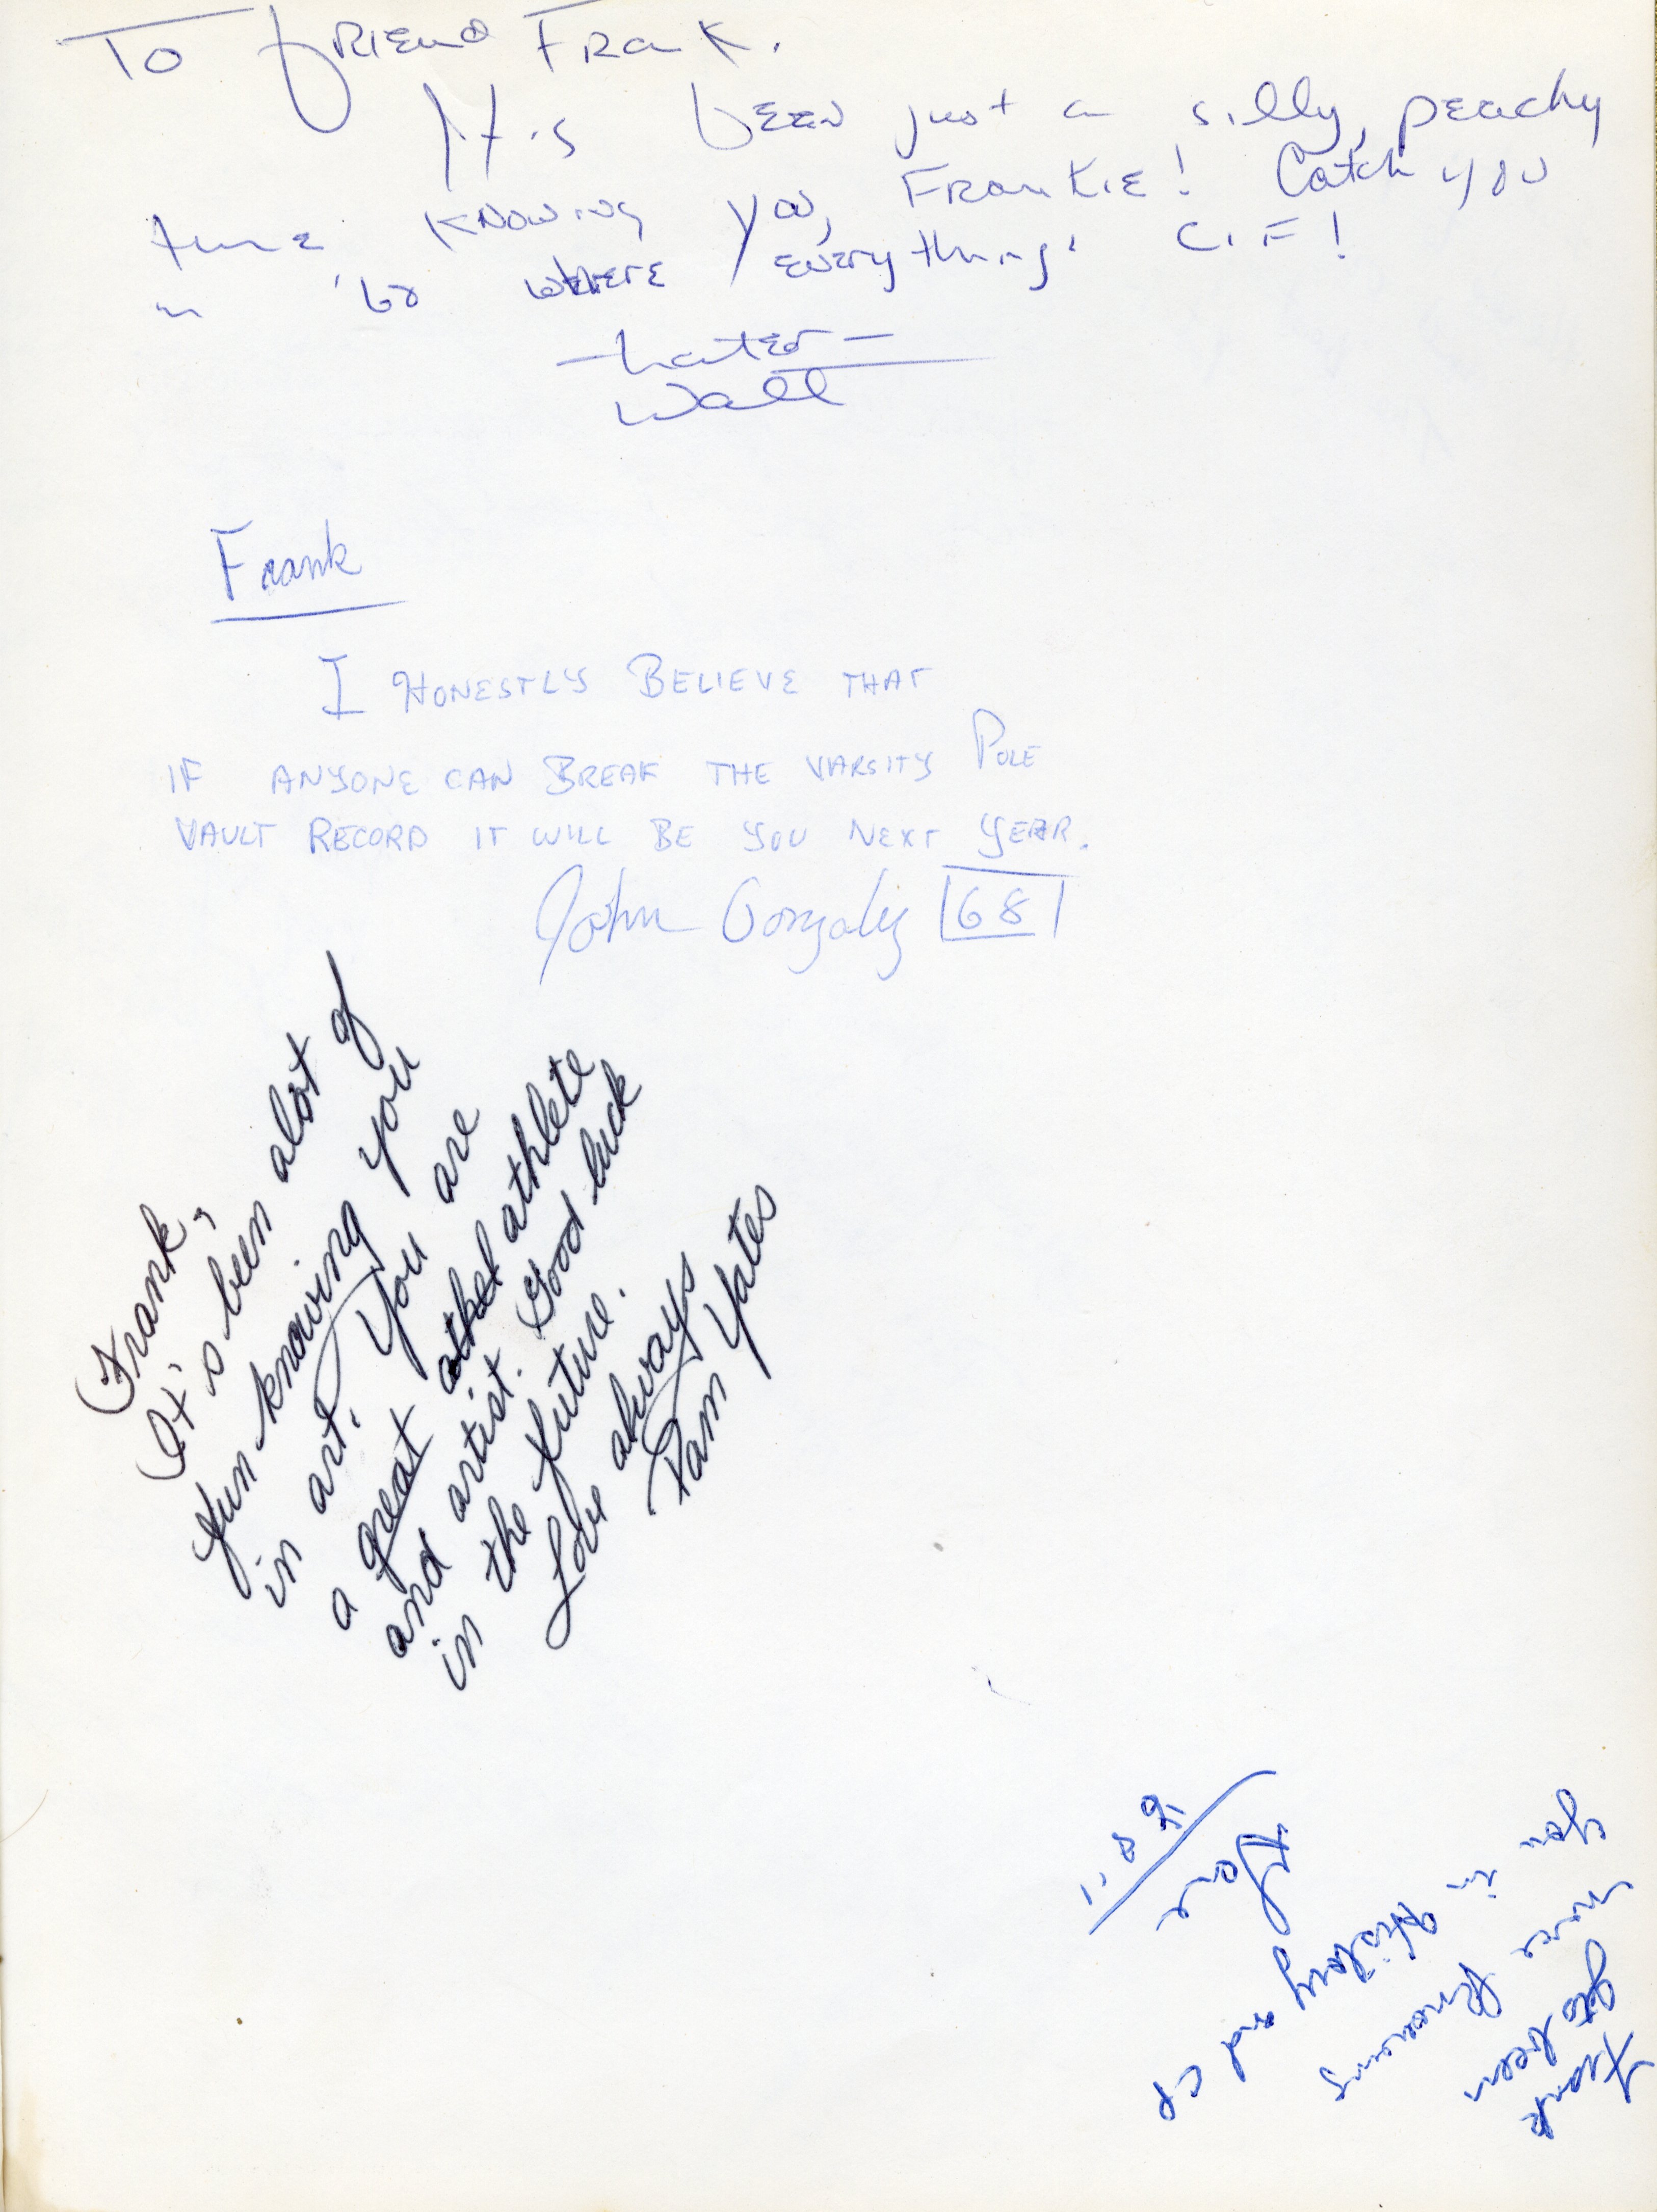 To friend Frank.
It's been just a silly, peachy
time knowing you, Frankie! Catch you
in '68 where everything's C.I.F!
-Later-
Wall
Frank
I HONESTLY BELIEVE THAT
IF ANYONE CAN BREAK THE VARSITY POLE
VAULT RECORD IT WILL BE YOU NEXT YEAR.
John Gonzalez 68
Frank,
It's been alot of
fun knowing you
in art. You are
a great athlete
and artist. Good luck
in the future.
Love always
Pam Yates
Frank
It's been
nice knowing
you in history and